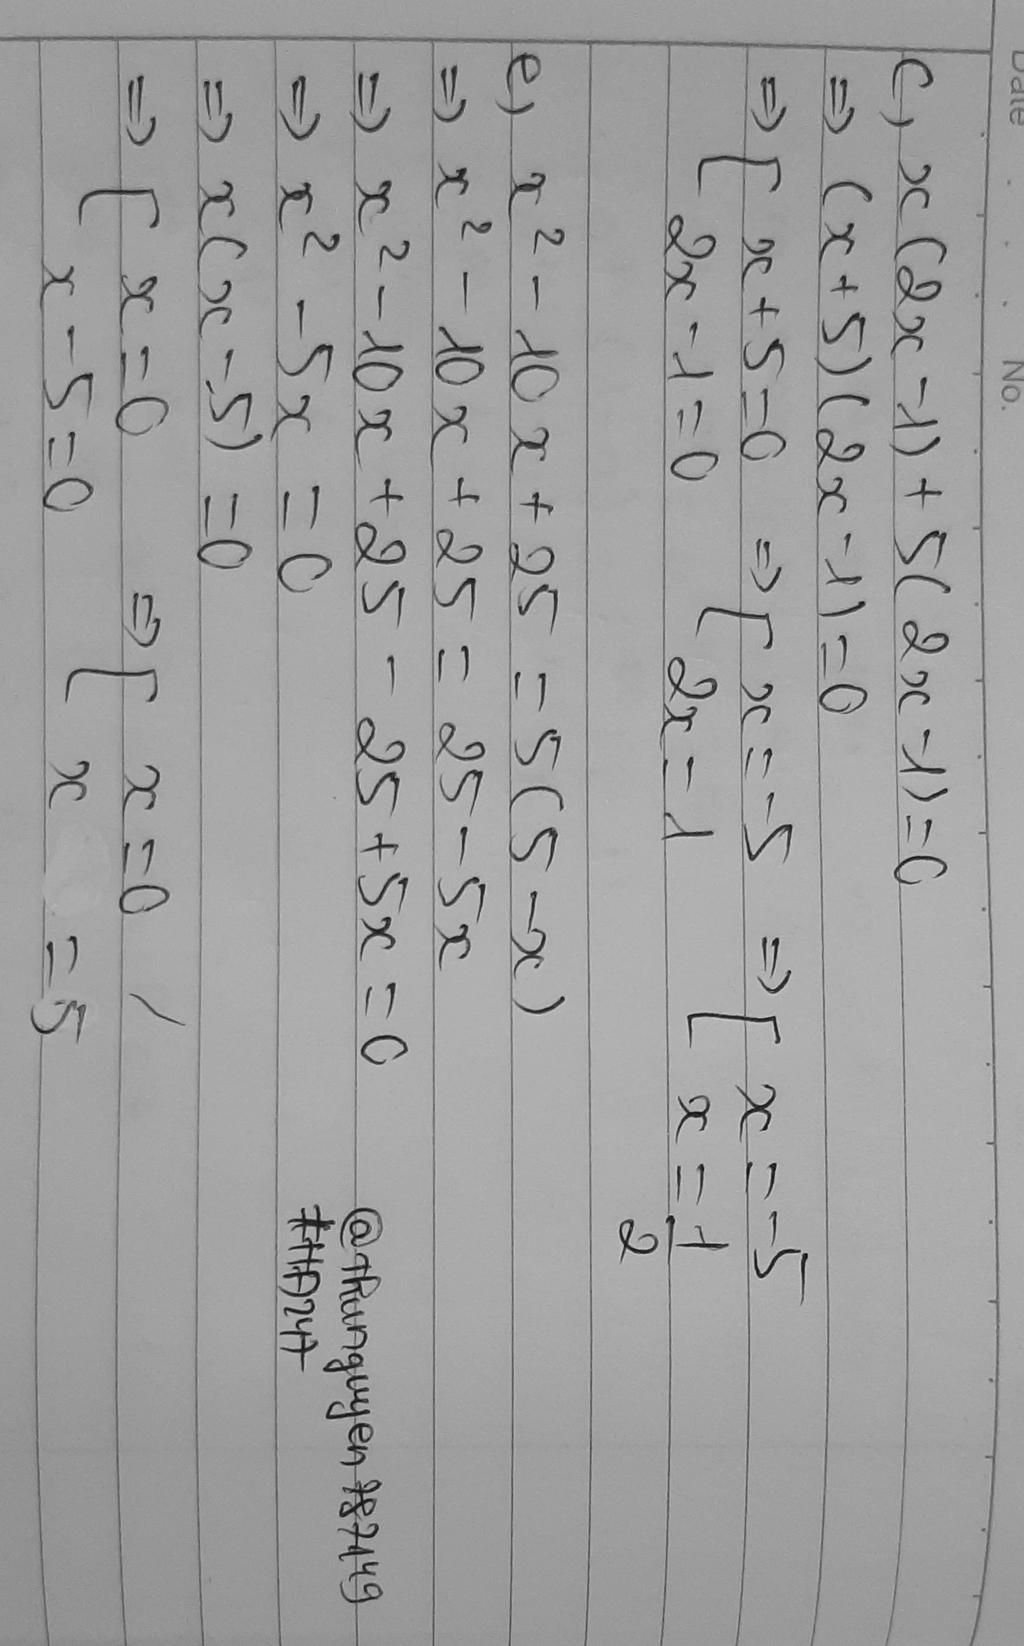 Date No.
c, x(2x-1)+5(2x-1)=0
=> (x+5)(2x-1)=0
=> [ x+5=0 => [ x=-5 => [ x=-5
2x-1=0 2x=1 x=1/2
e, x²-10x+25=5(5-x)
=> x²-10x+25=25-5x
=> x²-10x+25-25+5x=0
=> x²-5x=0
=> x(x-5)=0
=> [ x=0 => [ x=0
x-5=0 x=5
@thunguyen787449